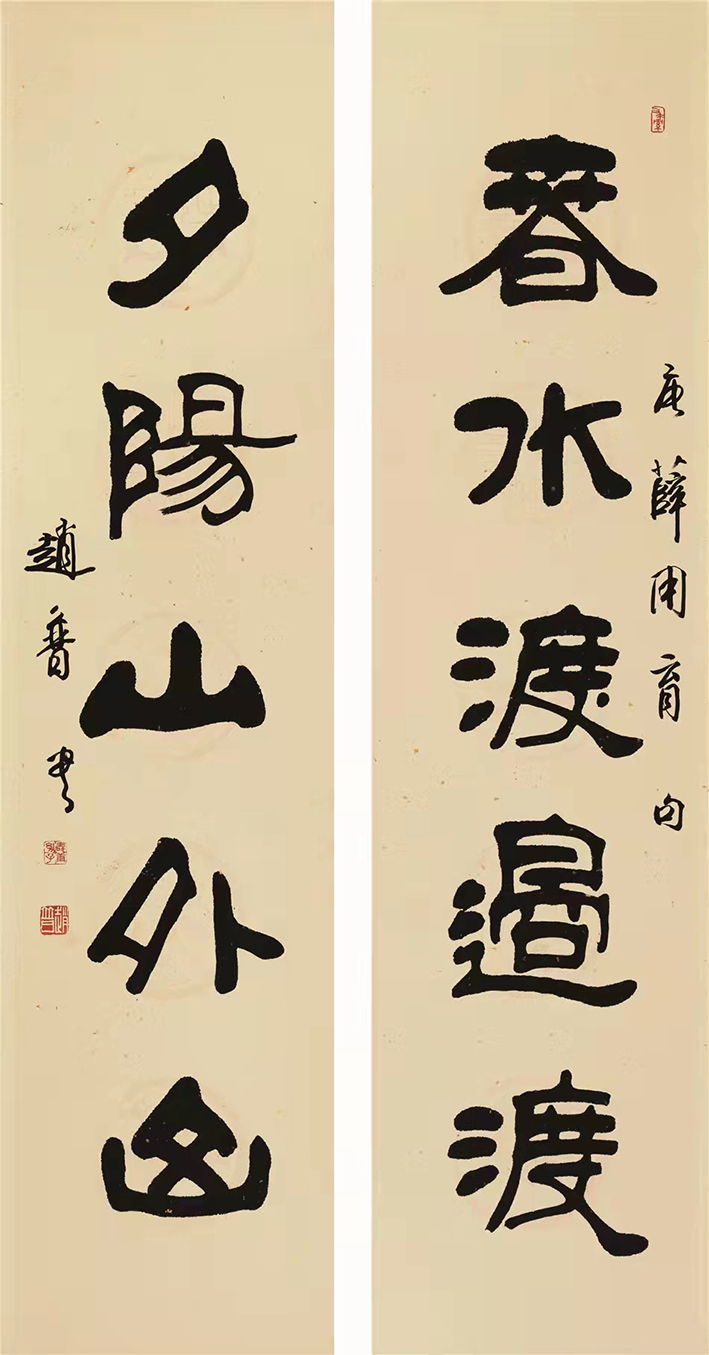 春水渡過渡
唐薛用育句
夕陽山外山
趙普書